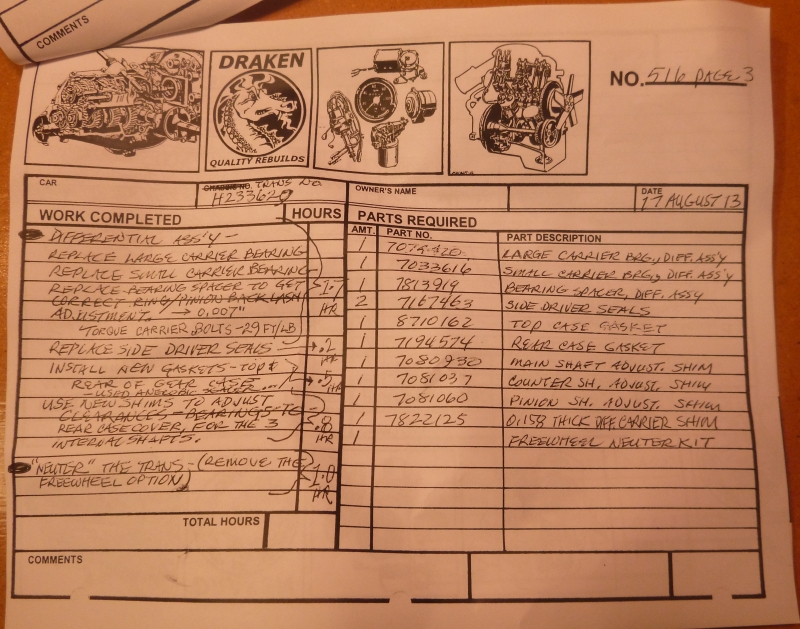 COMMENTS
DRAKEN
QUALITY REBUILDS
NO. 516 PAGE 3
CAR
CHASSIS NO. TRANS NO.
H233620
OWNER'S NAME
DATE
17 AUGUST 13
WORK COMPLETED
HOURS
PARTS REQUIRED
AMT.
PART NO.
PART DESCRIPTION
DIFFERENTIAL ASS'Y -
REPLACE LARGE CARRIER BEARING
REPLACE SMALL CARRIER BEARING
REPLACE BEARING SPACER TO GET
CORRECT RING/PINION BACK LASH
ADJUSTMENT → 0.007"
TORQUE CARRIER BOLTS - 29 FT/LB
HR
REPLACE SIDE DRIVER SEALS → .2
HR
INSTALL NEW GASKETS - TOP &
REAR OF GEAR CASE → .5
HR
- USED
USE NEW SHIMS TO ADJUST
CLEARANCES - BEARINGS TO
REAR CASE COVER, FOR THE 3
INTERNAL SHAFTS.
.8
HR
"NEUTER" THE TRANS - (REMOVE THE
FREEWHEEL OPTION)
1.0
HR
1 LARGE CARRIER BRG., DIFF. ASS'Y
1 7033616 SMALL CARRIER BRG., DIFF. ASS'Y
1 7813919 BEARING SPACER, DIFF. ASSY
2 7167463 SIDE DRIVER SEALS
1 8710162 TOP CASE GASKET
1 7194574 REAR CASE GASKET
1 7080930 MAIN SHAFT ADJUST. SHIM
1 7081037 COUNTER SH. ADJUST. SHIM
1 7081060 PINION SH. ADJUST. SHIM
1 7822125 0.158 THICK DIFF. CARRIER SHIM
1 FREEWHEEL NEUTER KIT
TOTAL HOURS
COMMENTS